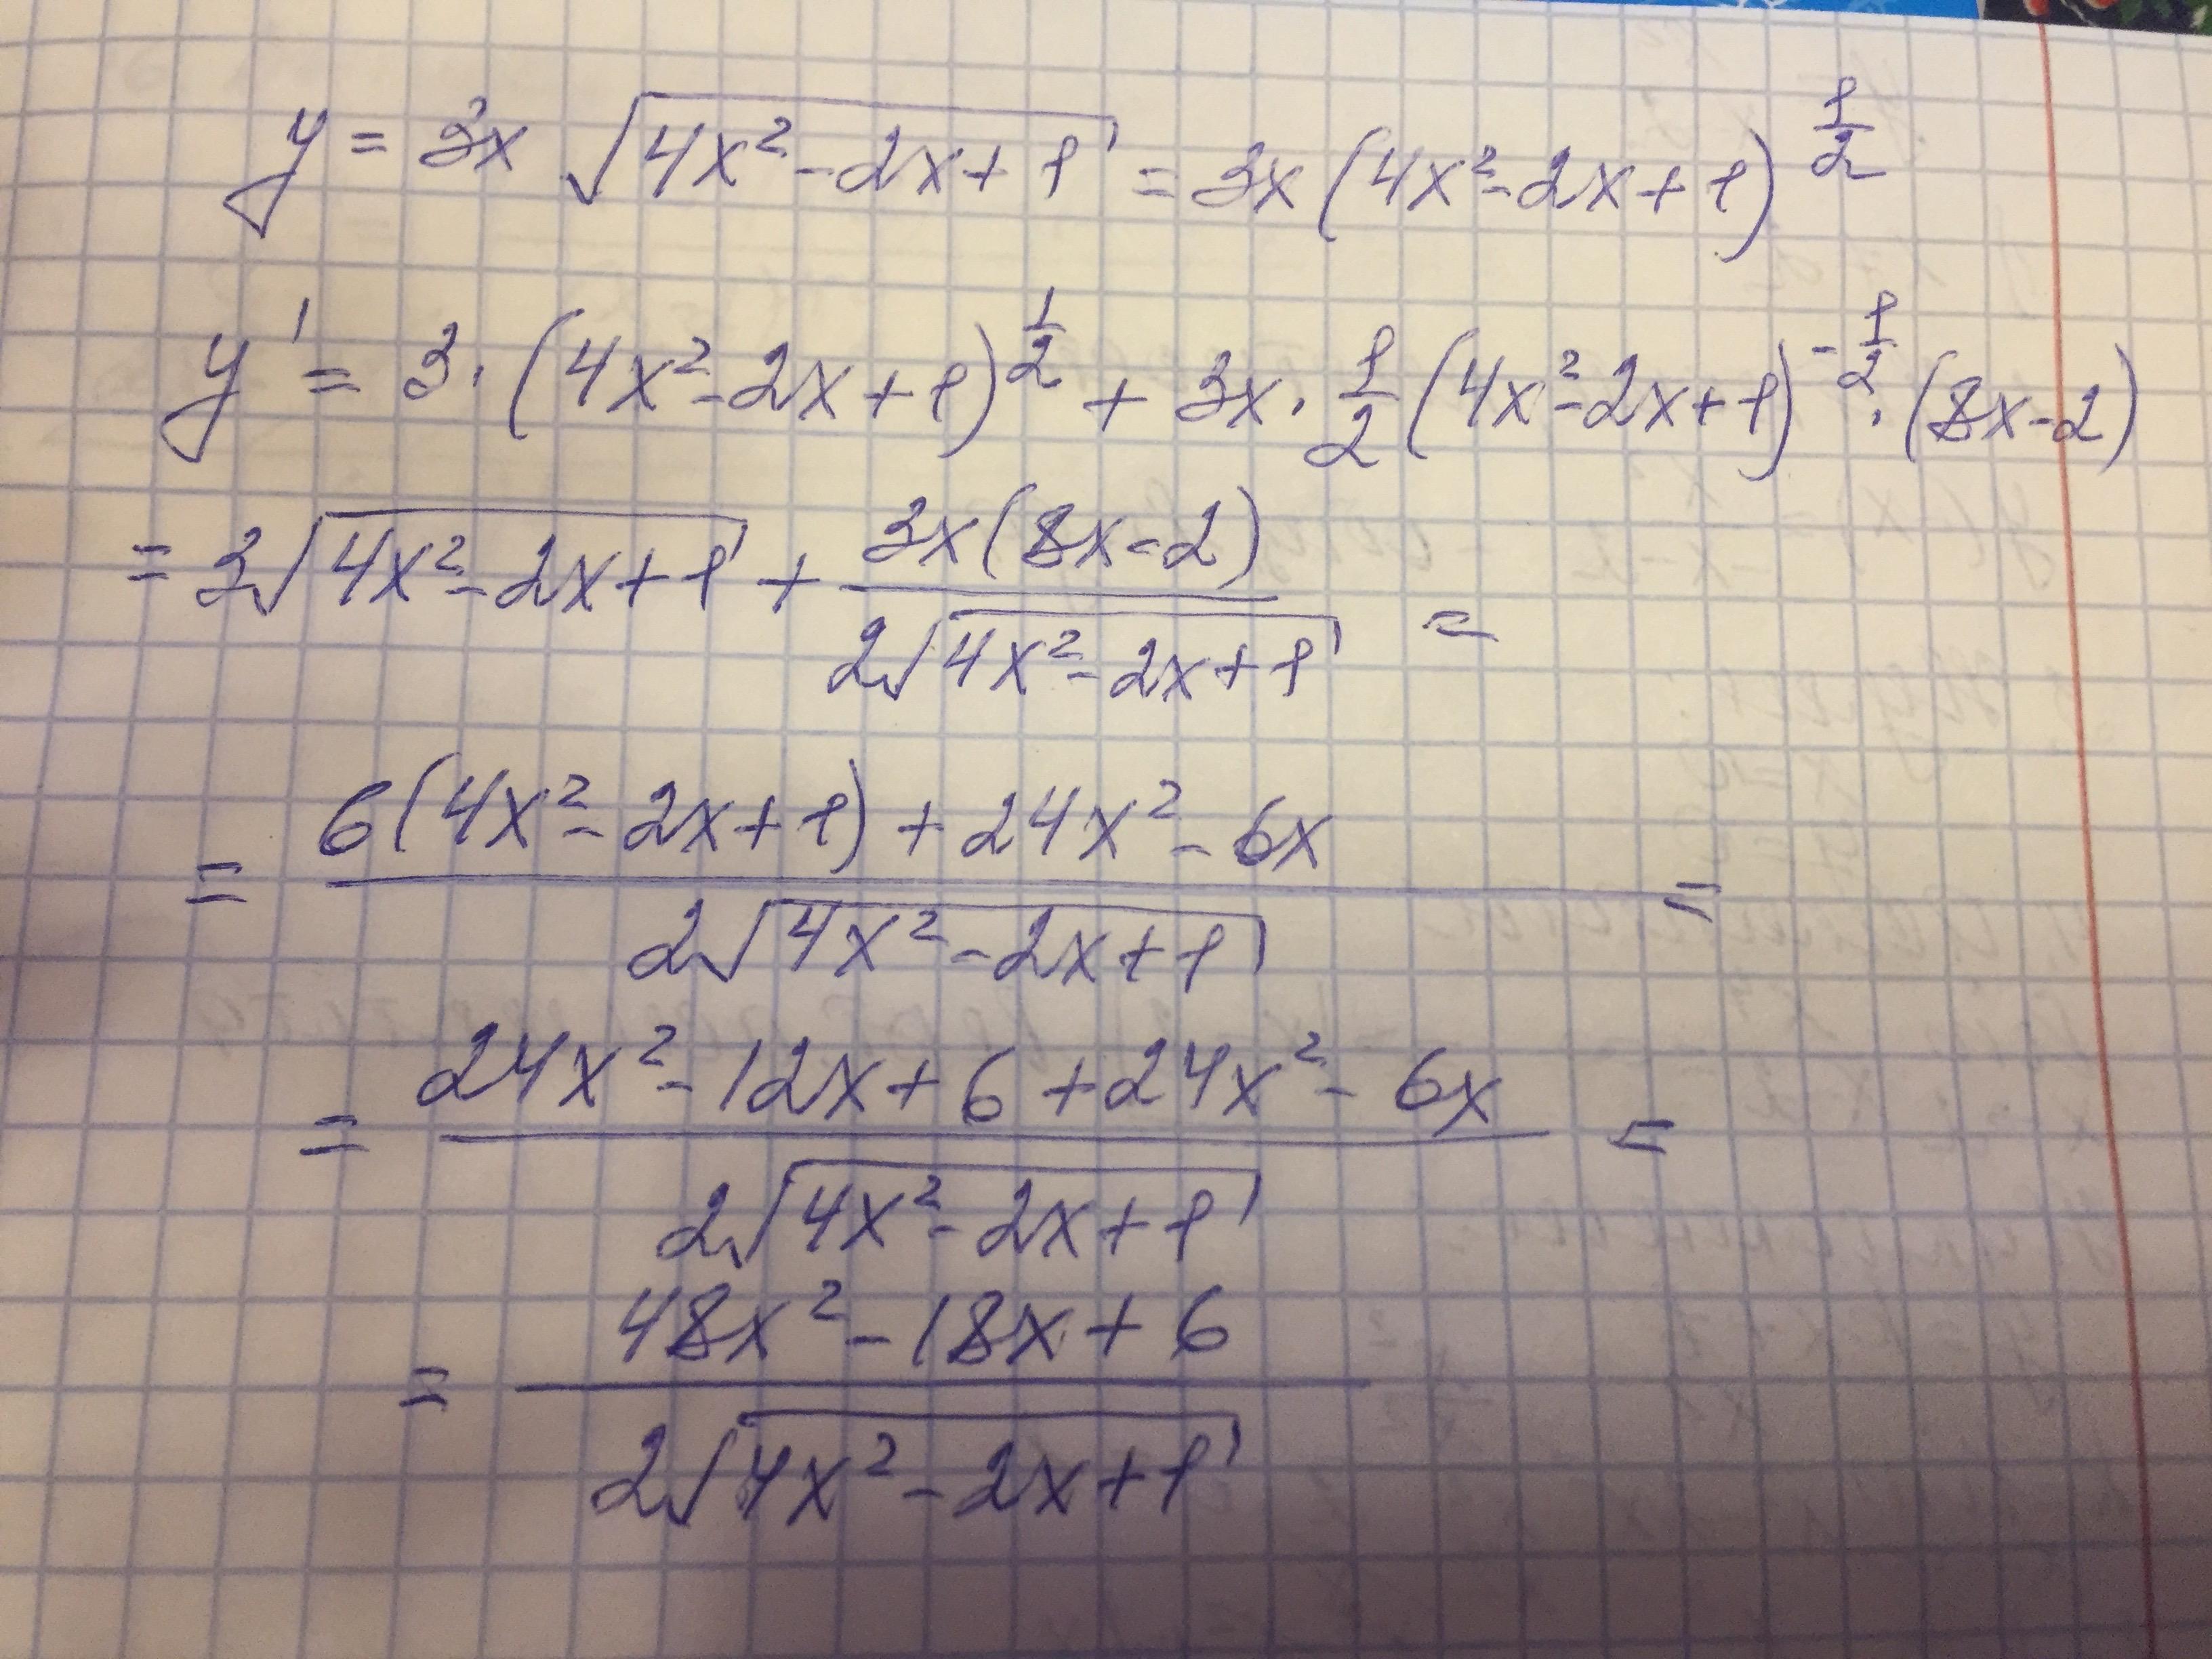 y = 3x √(4x² - 2x + 1) = 3x (4x² - 2x + 1)^(1/2)
y' = 3 · (4x² - 2x + 1)^(1/2) + 3x · 1/2 (4x² - 2x + 1)^(-1/2) · (8x - 2)
= 3√(4x² - 2x + 1) + 3x(8x - 2) / 2√(4x² - 2x + 1) =
= (6(4x² - 2x + 1) + 24x² - 6x) / 2√(4x² - 2x + 1) =
= (24x² - 12x + 6 + 24x² - 6x) / 2√(4x² - 2x + 1) =
= (48x² - 18x + 6) / 2√(4x² - 2x + 1)